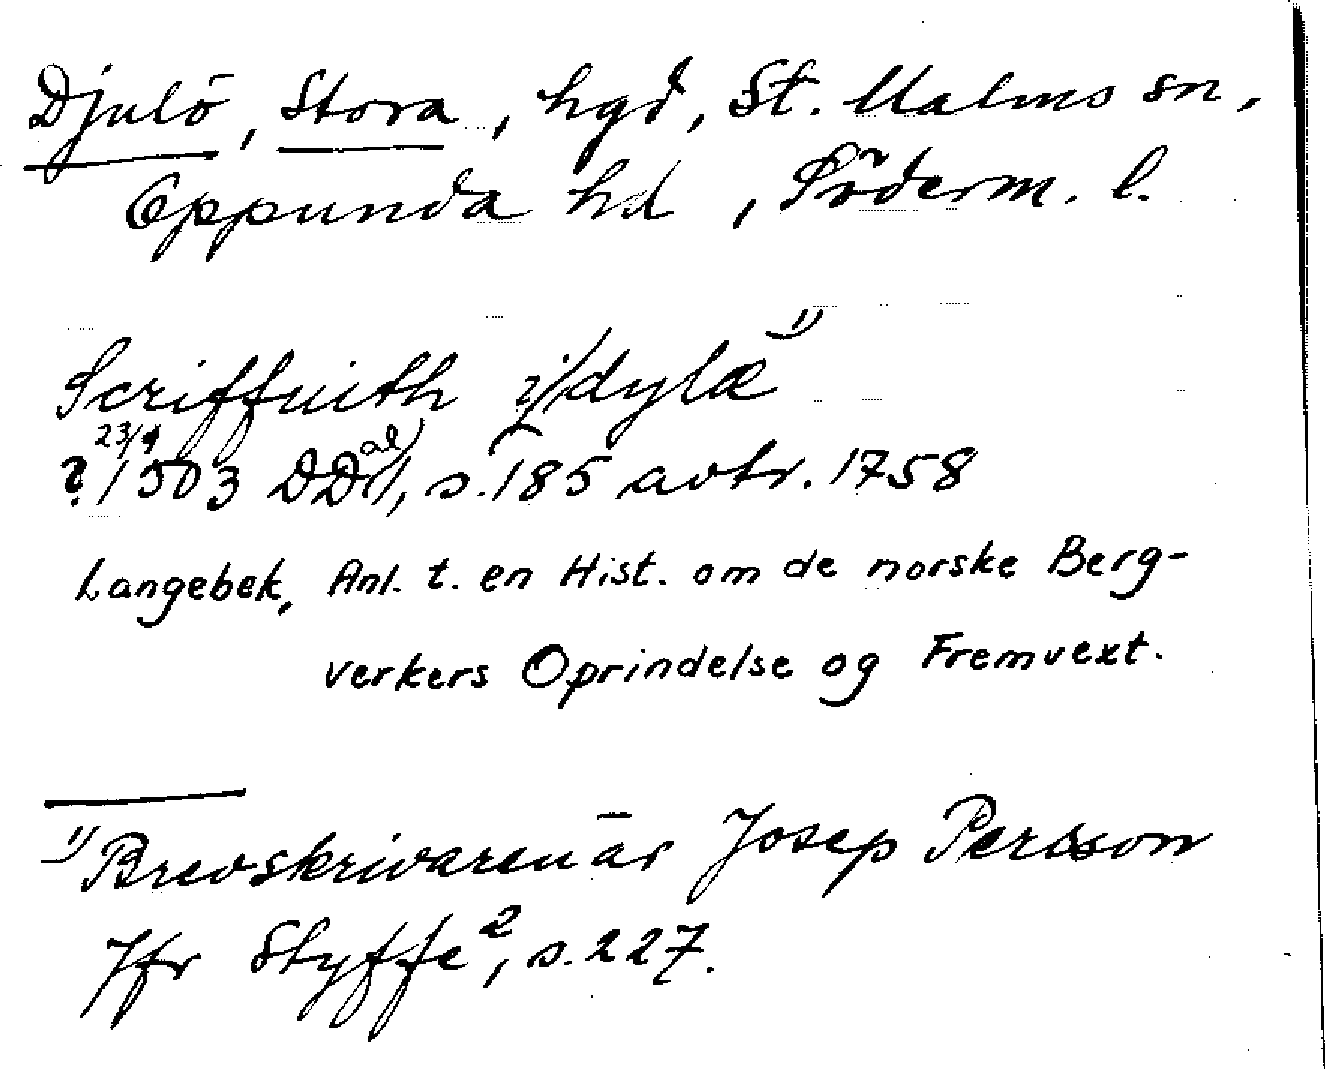 Djulö, Stora, hgd, St. Malms sn,
Oppunda hd, Söderm. l.
Scriffuith i dylæ 1)
? 23/4 1503 DD(al), s. 185 avtr. 1758
Langebek, Anl. t. en Hist. om de norske Berg-
verkers Oprindelse og Fremvext.
1) Brevskrivaren är Josep Persson
Jfr Styffe², s. 227.